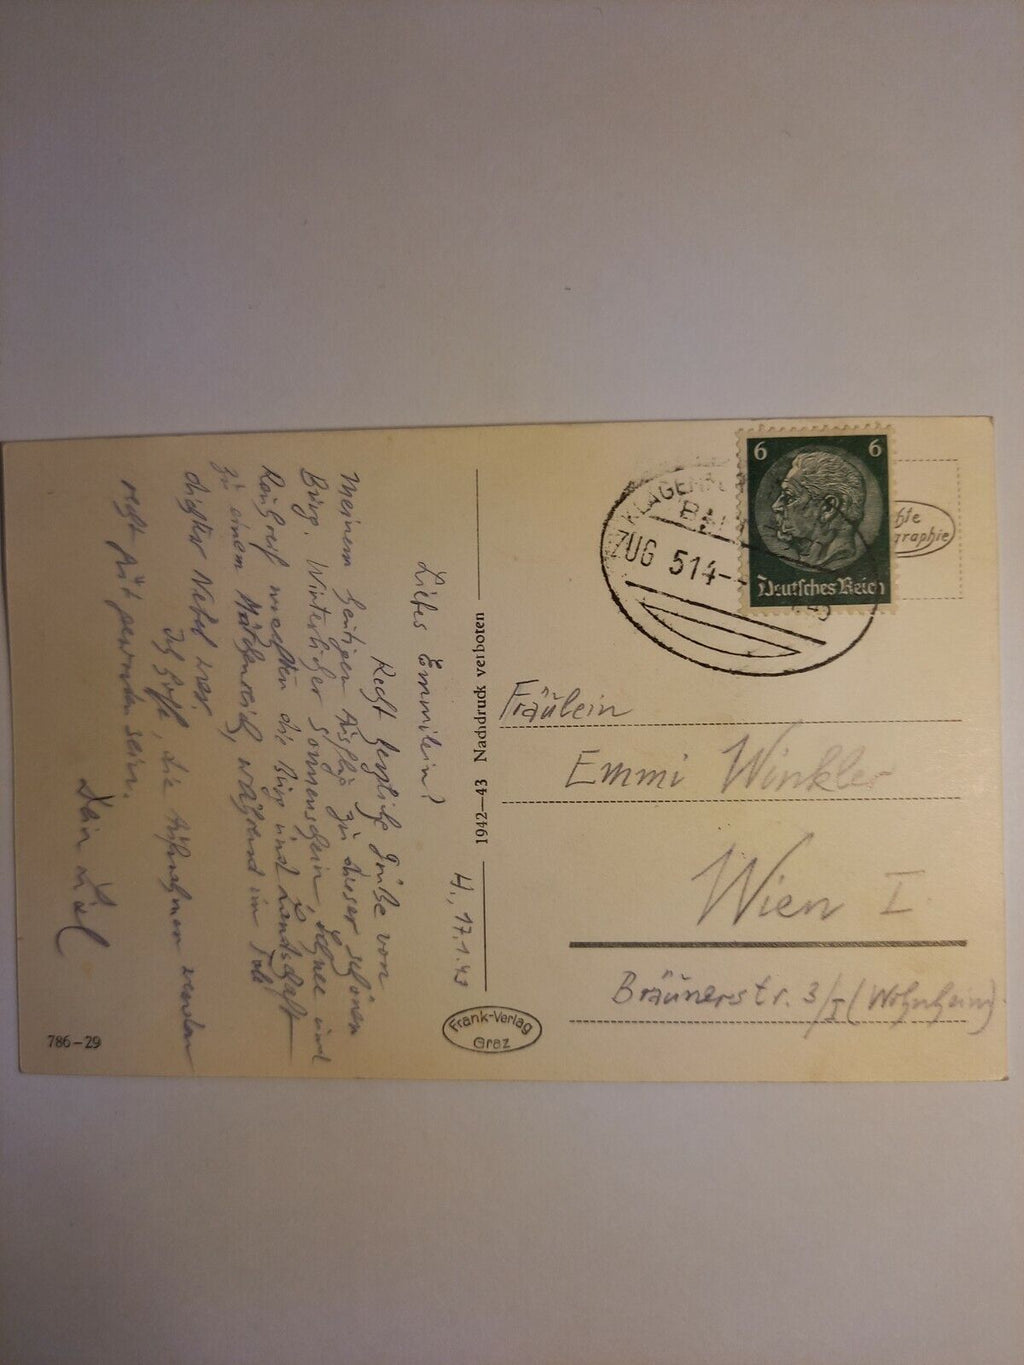 H., 17.1.43
Liebes Emmilein!
Recht herzliche Grüße von
meinem heutigen Ausflug zu dieser schönen
Burg. Winterlicher Sonnenschein, Schnee und
Rauhreif machten die Burg und Landschaft
zu einem Märchenreich, während im Tal
dichter Nebel war.
Ich hoffe, die Aufnahmen werden
recht gut geworden sein.
Dein
786-29
1942-43 Nachdruck verboten
Frank-Verlag
Graz
KLAGENFU
BA
ZUG 514
6 6
Deutsches Reich
hte
graphie
Fräulein
Emmi Winkler
Wien I.
Bräunerstr. 3/I (Wohnheim)